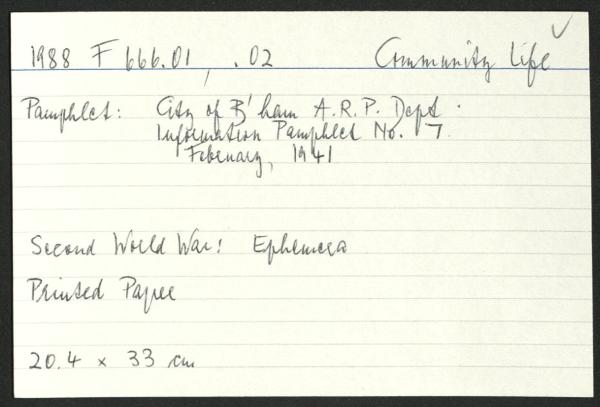 1988 F 666.01, .02 Community Life
Pamphlet: City of B'ham A.R.P. Dept.
Information Pamphlet No. 7.
February, 1941
Second World War: Ephemera
Printed Paper
20.4 x 33 cm